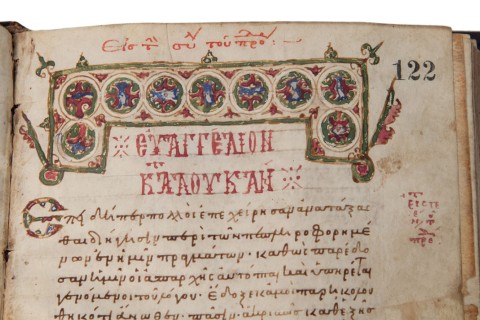 Εἰς τ σύ τοῦ προ
122
ΕΥΑΓΓΕΛΙΟΝ
ΚΑ ΛΟΥΚΑΝ
Ἐπειδήπερ πολλοὶ ἐπεχείρησαν ἀνατάξα
σθαι διήγησιν περὶ τῶν πεπληροφορημέ
νων ἐν ἡμῖν πραγμάτων. καθὼς παρέδο
σαν ἡμῖν οἱ ἀπαρχῆς αὐτόπται καὶ ὑπηρέται
γενόμενοι τοῦ λόγου. ἔδοξε κἀμοὶ παρηκολου
θηκότι ἄνωθεν πᾶσιν ἀκριβῶς καθεξῆς